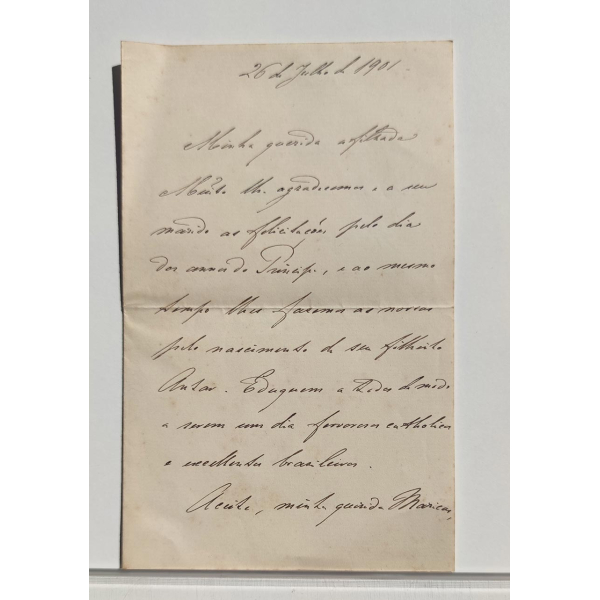 26 de Julho de 1901.
Minha querida afilhada
Muito lhe agradecemos e a seu
marido as felicitações pelo dia
dos annos do Principe, e ao mesmo
tempo lhes fazemos as nossas
pelo nascimento de seu filhinho
Eduquem a todos de modo
a serem um dia fervorosos catholicos
e excellentes brasileiros.
Aceite, minha querida